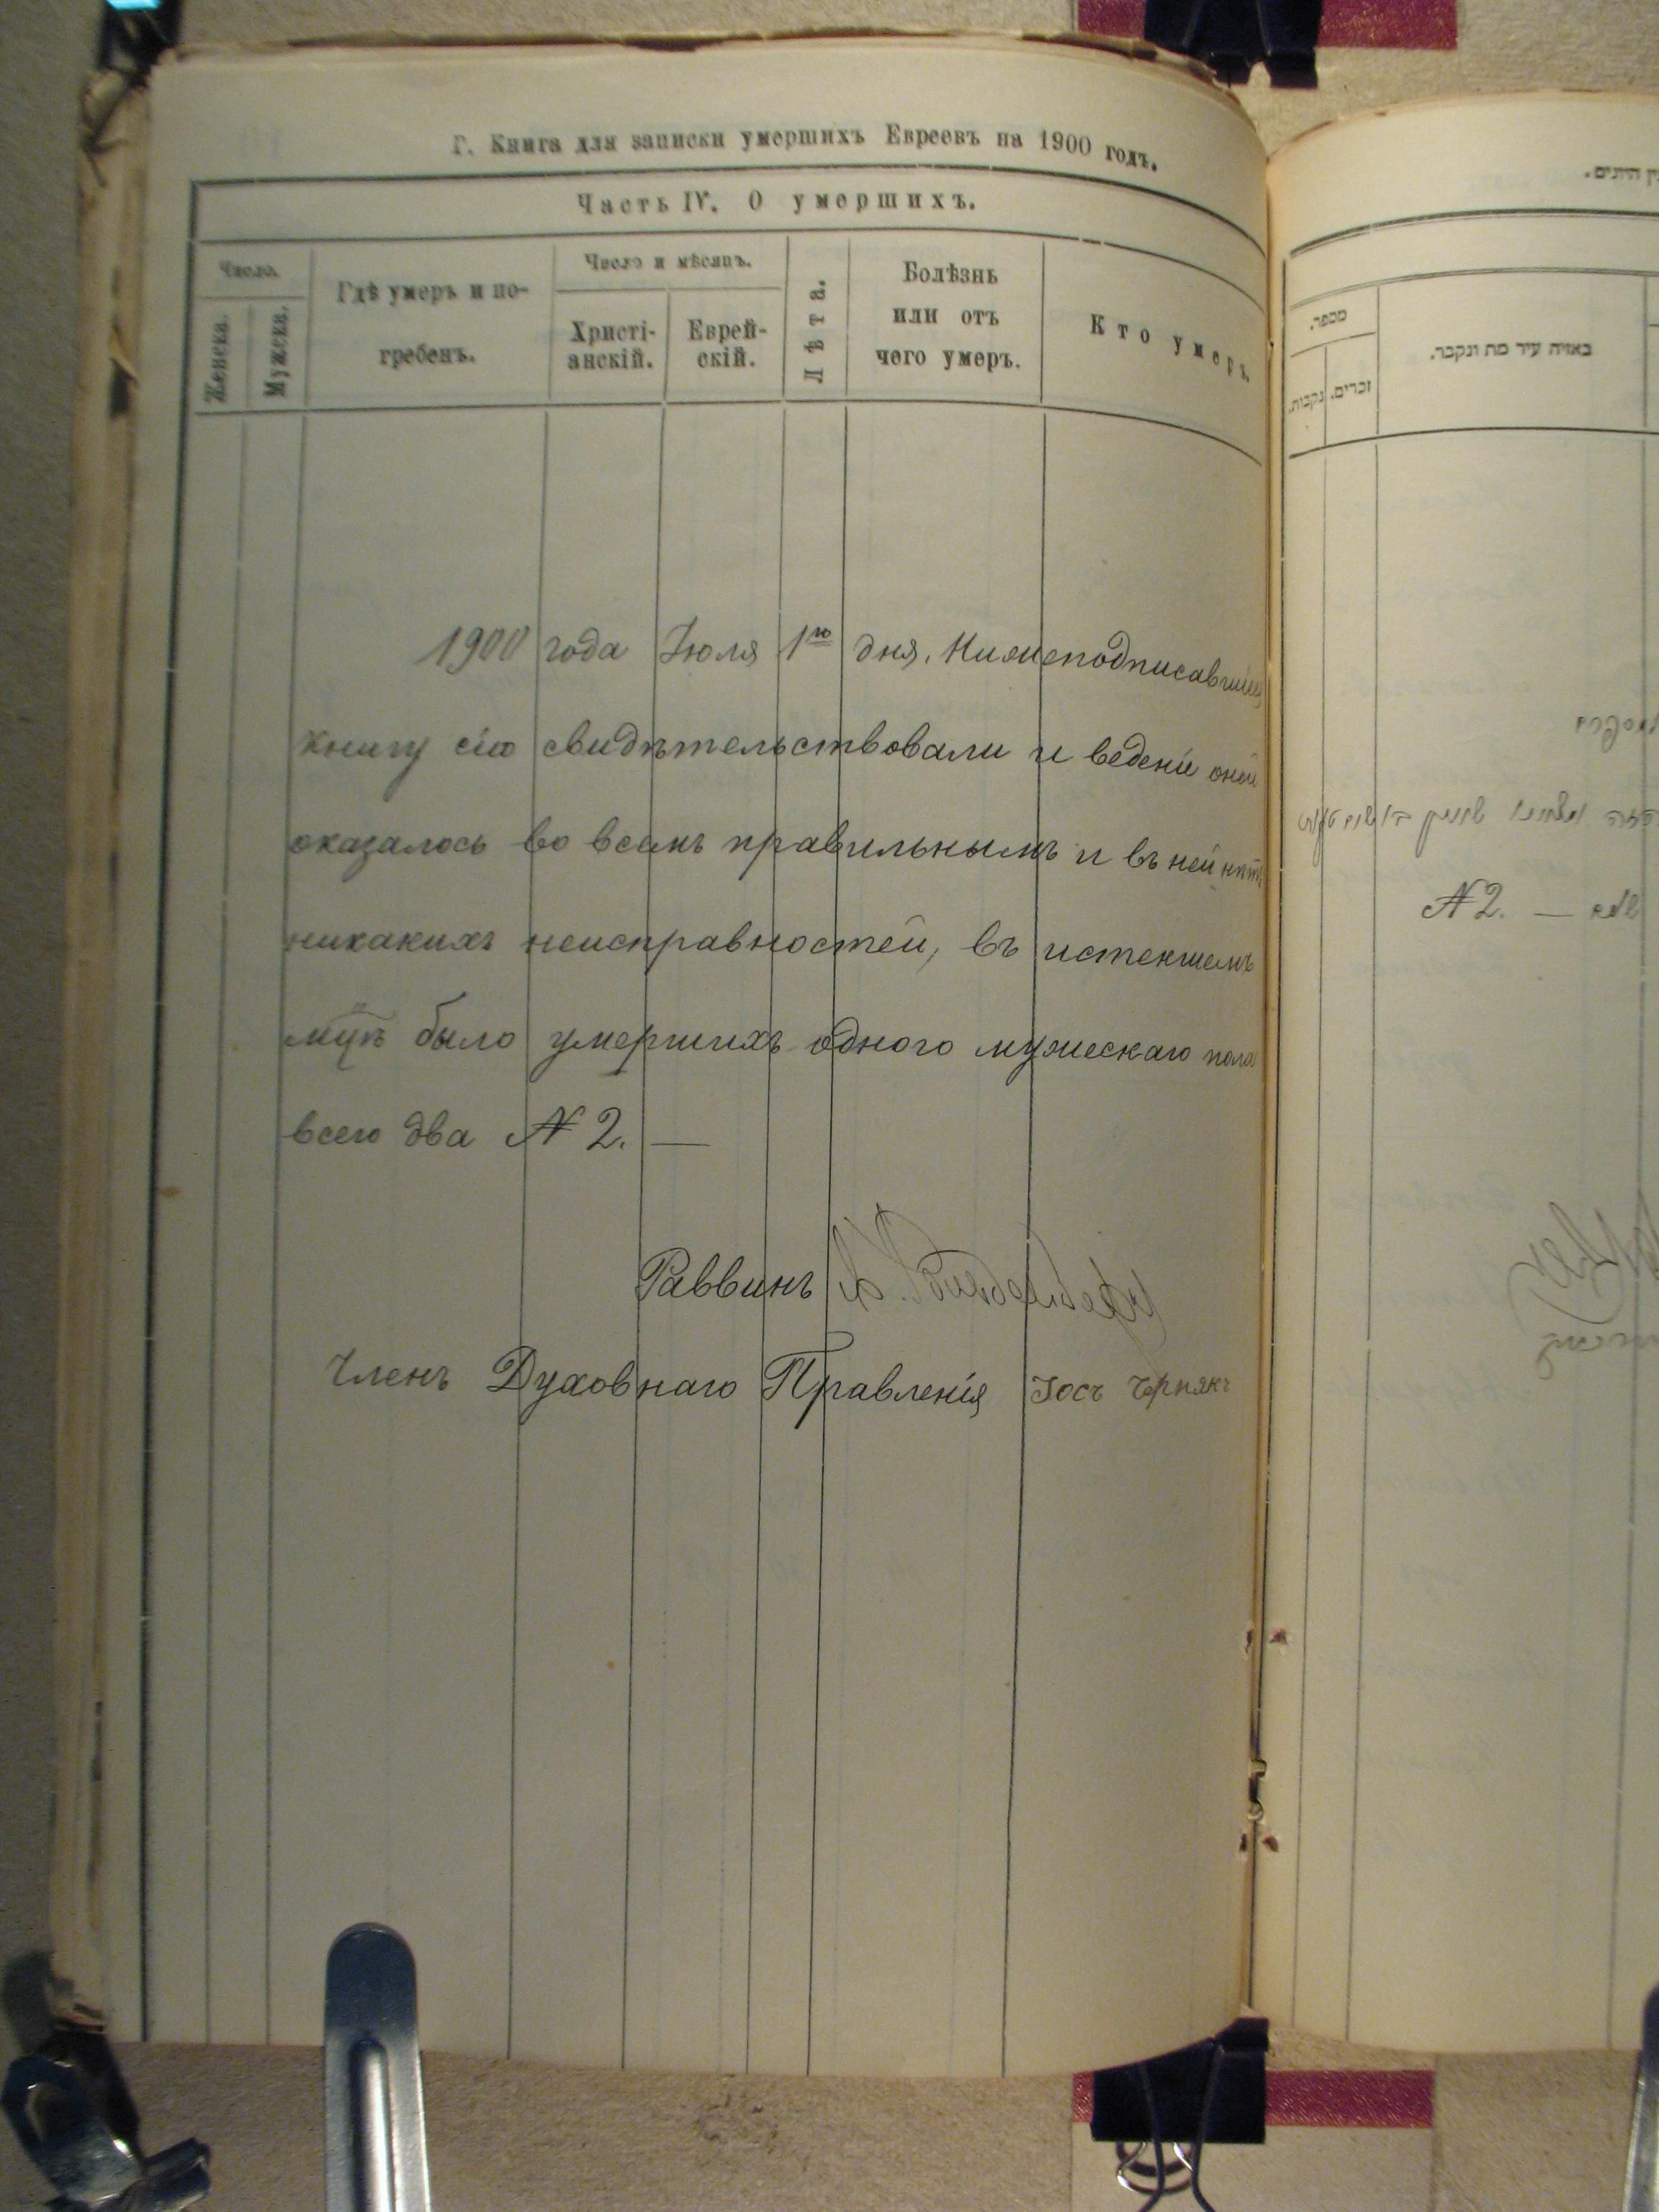 Г. Книга для записки умершихъ Евреевъ на 1900 годъ.
Часть IV. О умершихъ.
Число.
Женска.
Мужеска.
Гдѣ умеръ и по-
гребенъ.
Число и мѣсяцъ.
Христі-
анскій.
Еврей-
скій.
Лѣта.
Болѣзнь
или отъ
чего умеръ.
Кто умеръ.
1900 года Іюля 1го дня. Нижеподписавшіеся
книгу сію свидѣтельствовали и веденіе оной
оказалось во всемъ правильнымъ и въ ней нѣтъ
никакихъ неисправностей, въ истекшемъ
было умершихъ одного мужескаго пола
всего два № 2. —
Раввинъ
Членъ Духовнаго Правленія Іосъ Чернякъ
מספר.
זכרים.
נקבות.
באיזה עיר מת ונקבר.
№ 2. —